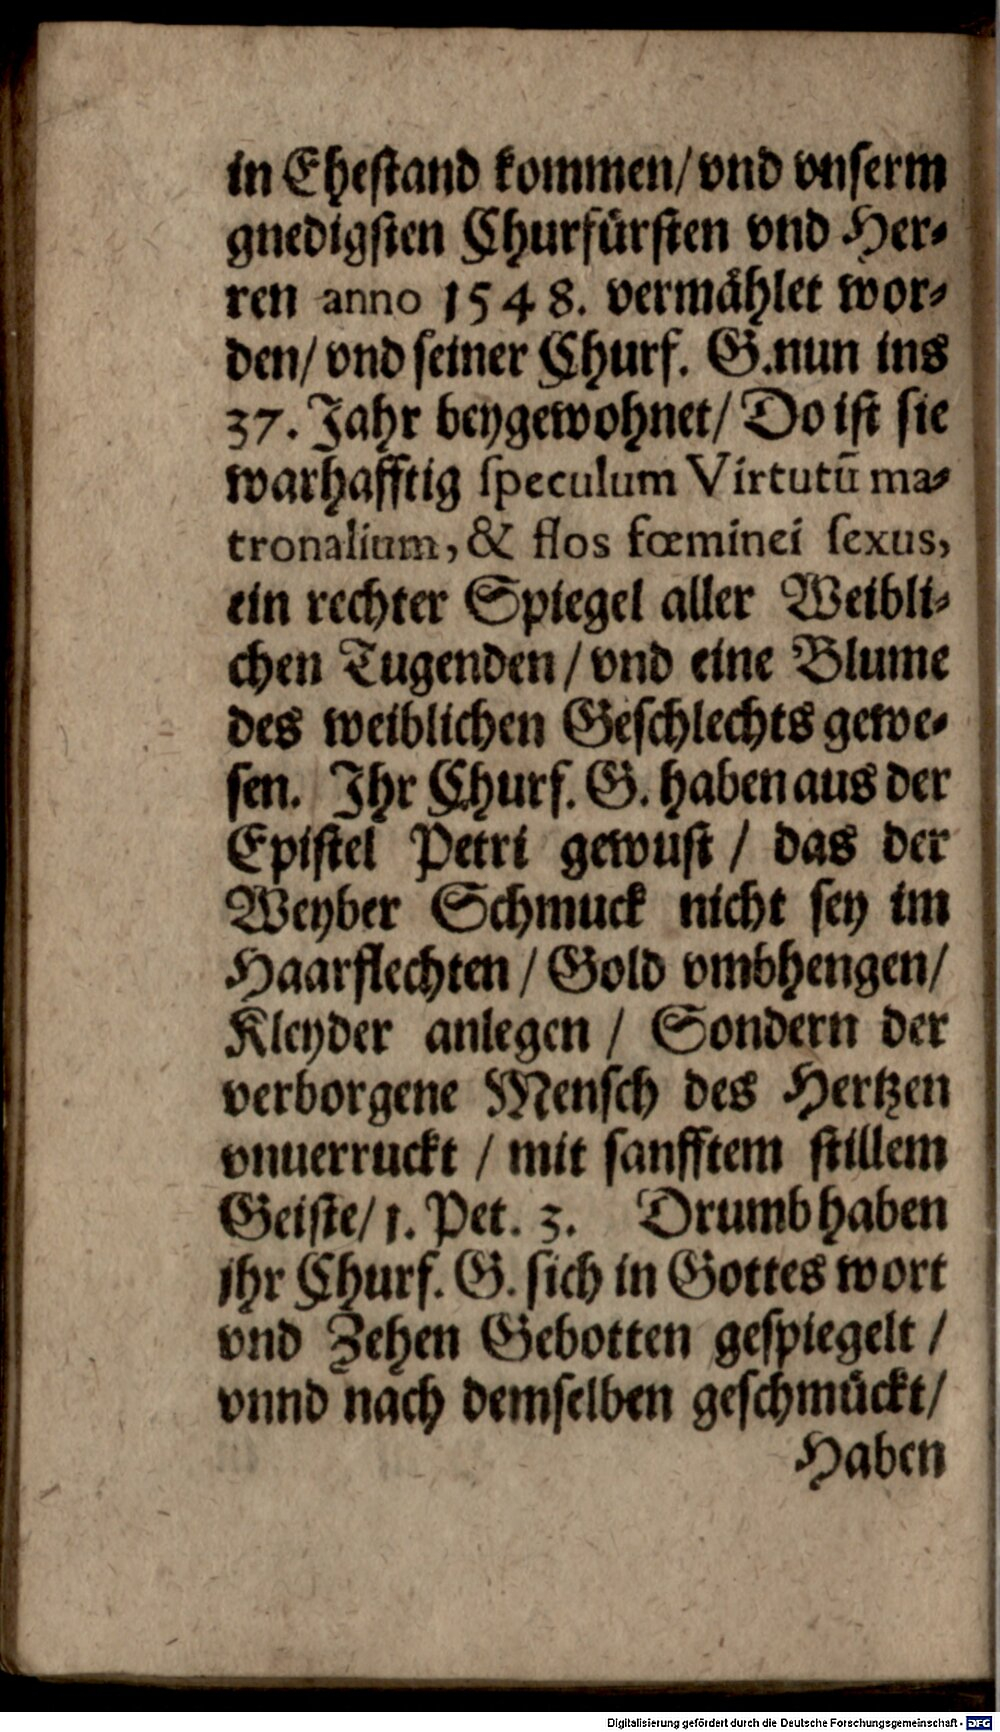 in Ehestand kommen/ vnd vnserm
gnedigsten Churfürsten vnd Her-
ren anno 1548. vermählet wor-
den/ vnd seiner Churf. G. nun ins
37. Jahr beygewohnet/ Do ist sie
warhafftig speculum Virtutū ma-
tronalium, & flos fœminei sexus,
ein rechter Spiegel aller Weibli-
chen Tugenden / vnd eine Blume
des weiblichen Geschlechts gewe-
sen. Ihr Churf. G. haben aus der
Epistel Petri gewust / das der
Weyber Schmuck nicht sey im
Haarflechten / Gold vmbhengen/
Kleyder anlegen / Sondern der
verborgene Mensch des Hertzen
vnuerruckt / mit sanfftem stillem
Geiste/ 1. Pet. 3. Drumb haben
jhr Churf. G. sich in Gottes wort
vnd Zehen Gebotten gespiegelt /
vnnd nach demselben geschmückt/
Haben
Digitalisierung gefördert durch die Deutsche Forschungsgemeinschaft - DFG